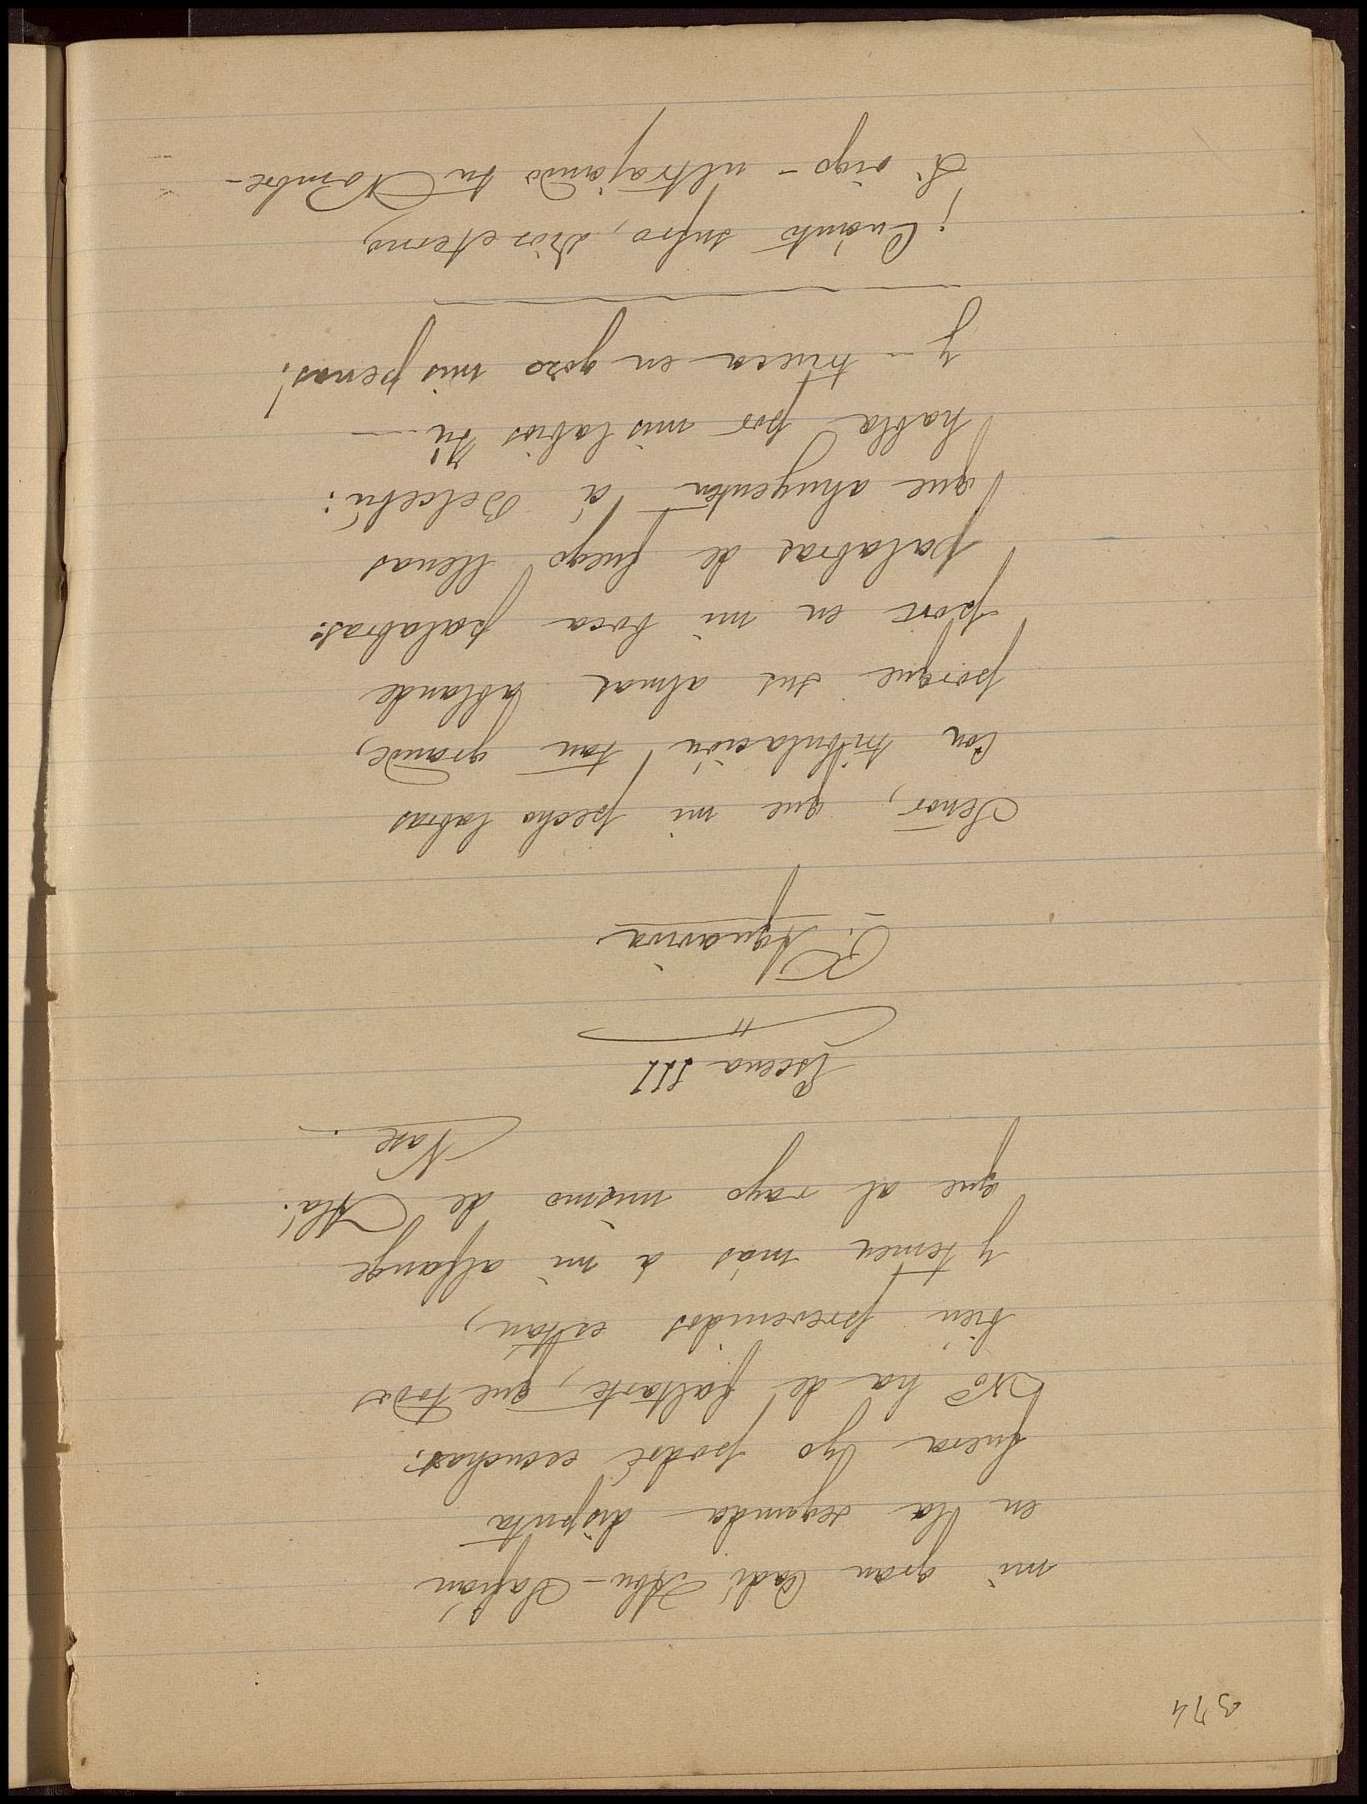 374
mi gran Cadí Abu-Safian
en la segunda disputa
fuera yo podré escuchar.
No ha de faltarte, que todos
bien prevenidos estan,
y temen más a mi alfange
que al rayo mismo de Alá!
Vase.
Escena III
"
P. Aquaviva
Señor, que mi pecho labras
con tribulación tan grande,
porque sus almas ablande
pon en mi boca palabras:
palabras de fuego llenas
que ahuyenten á Belcebú:
habla por mis labios tú —
y — trueca en gozo mis penas!
¡Cuánto sufro, Dios eterno,
Si oigo - ultrajando tu Nombre -